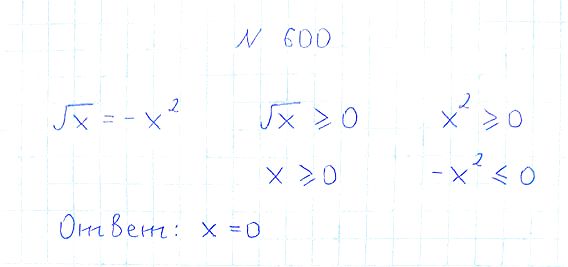 N 600
√x = - x² √x ⩾ 0 x² ⩾ 0
x ⩾ 0 -x² ⩽ 0
Ответ: x = 0